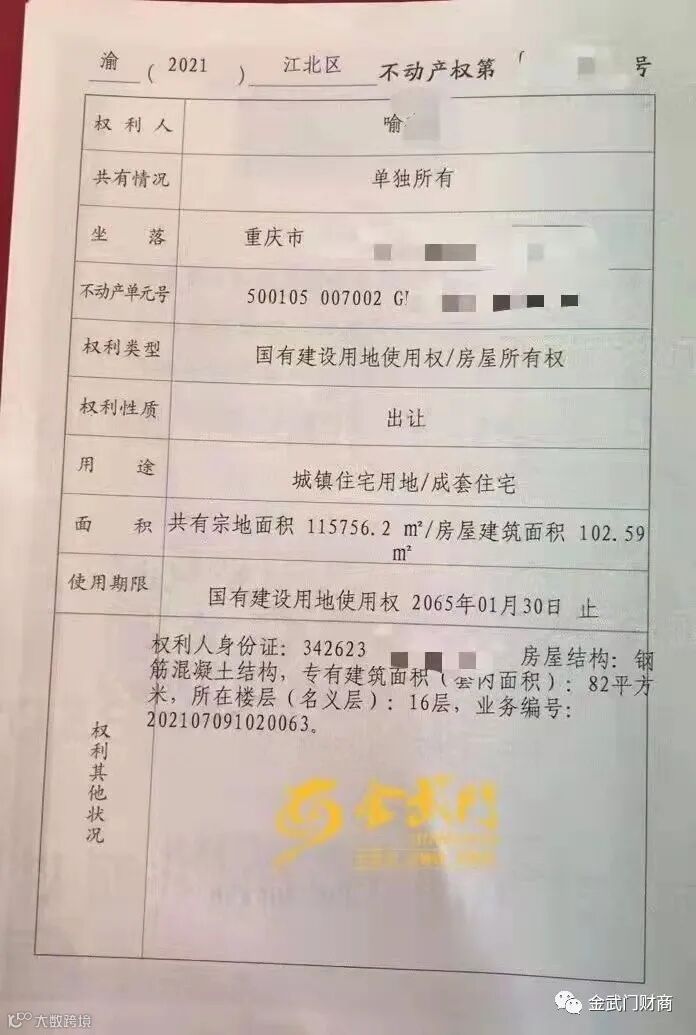 渝(2021)江北区 不动产权第 号
权利人 喻
共有情况 单独所有
坐落 重庆市
不动产单元号 500105 007002
权利类型 国有建设用地使用权/房屋所有权
权利性质 出让
用途 城镇住宅用地/成套住宅
面积 共有宗地面积 115756.2 ㎡/房屋建筑面积 102.59
㎡
使用期限 国有建设用地使用权 2065年01月30日 止
权利其他状况
权利人身份证：342623 房屋结构：钢
筋混凝土结构，专有建筑面积（套内面积）：82平方
米，所在楼层（名义层）：16层，业务编号：
202107091020063。
金武门
金武门财商
大数跨境